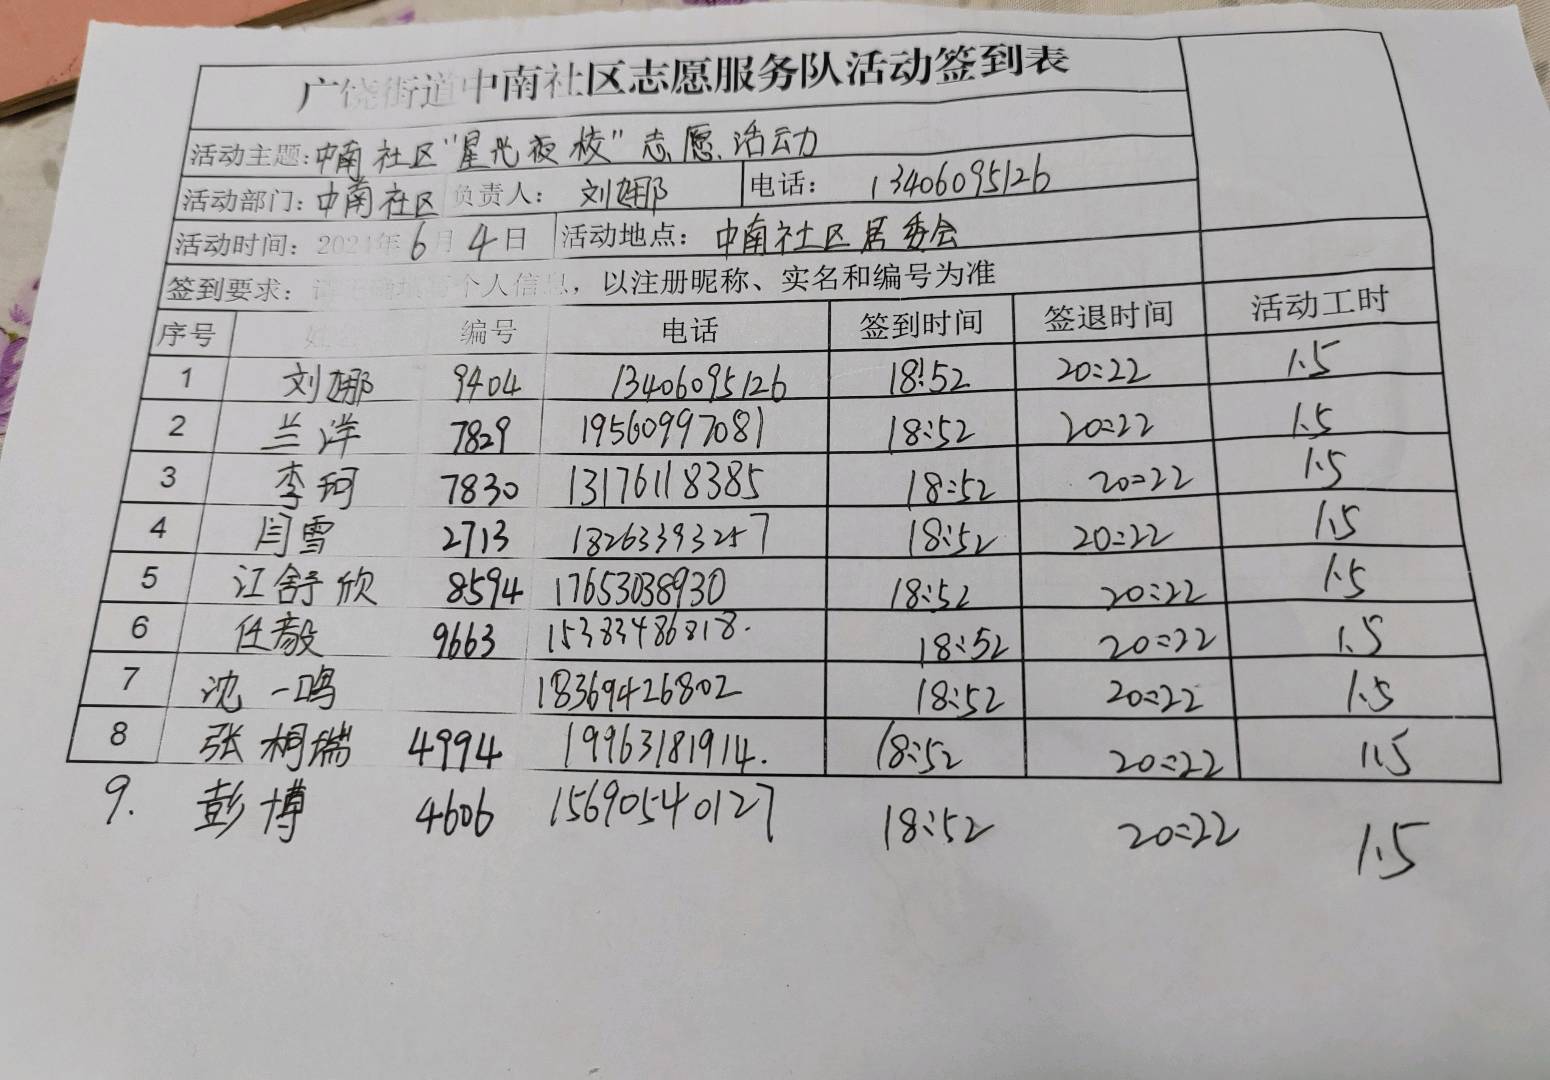 广饶街道中南社区志愿服务队活动签到表
活动主题:中南社区"星光夜校"志愿活动
活动部门:中南社区 负责人: 刘娜 电话: 13406095126
活动时间: 2021年6月4日 活动地点: 中南社区居委会
签到要求: 请正确填写个人信息，以注册昵称、实名和编号为准
序号 姓名 编号 电话 签到时间 签退时间 活动工时
1 刘娜 9404 13406095126 18:52 20:22 1.5
2 兰洋 7829 19560997081 18:52 20:22 1.5
3 李珂 7830 13176118385 18:52 20:22 1.5
4 闫雪 2713 18263393257 18:52 20:22 1.5
5 江舒欣 8594 17653038930 18:52 20:22 1.5
6 任毅 9663 15383486818. 18:52 20:22 1.5
7 沈一鸣 18369426802 18:52 20:22 1.5
8 张桐瑞 4994 19963181914. 18:52 20:22 1.5
9. 彭博 4606 15690540127 18:52 20:22 1.5